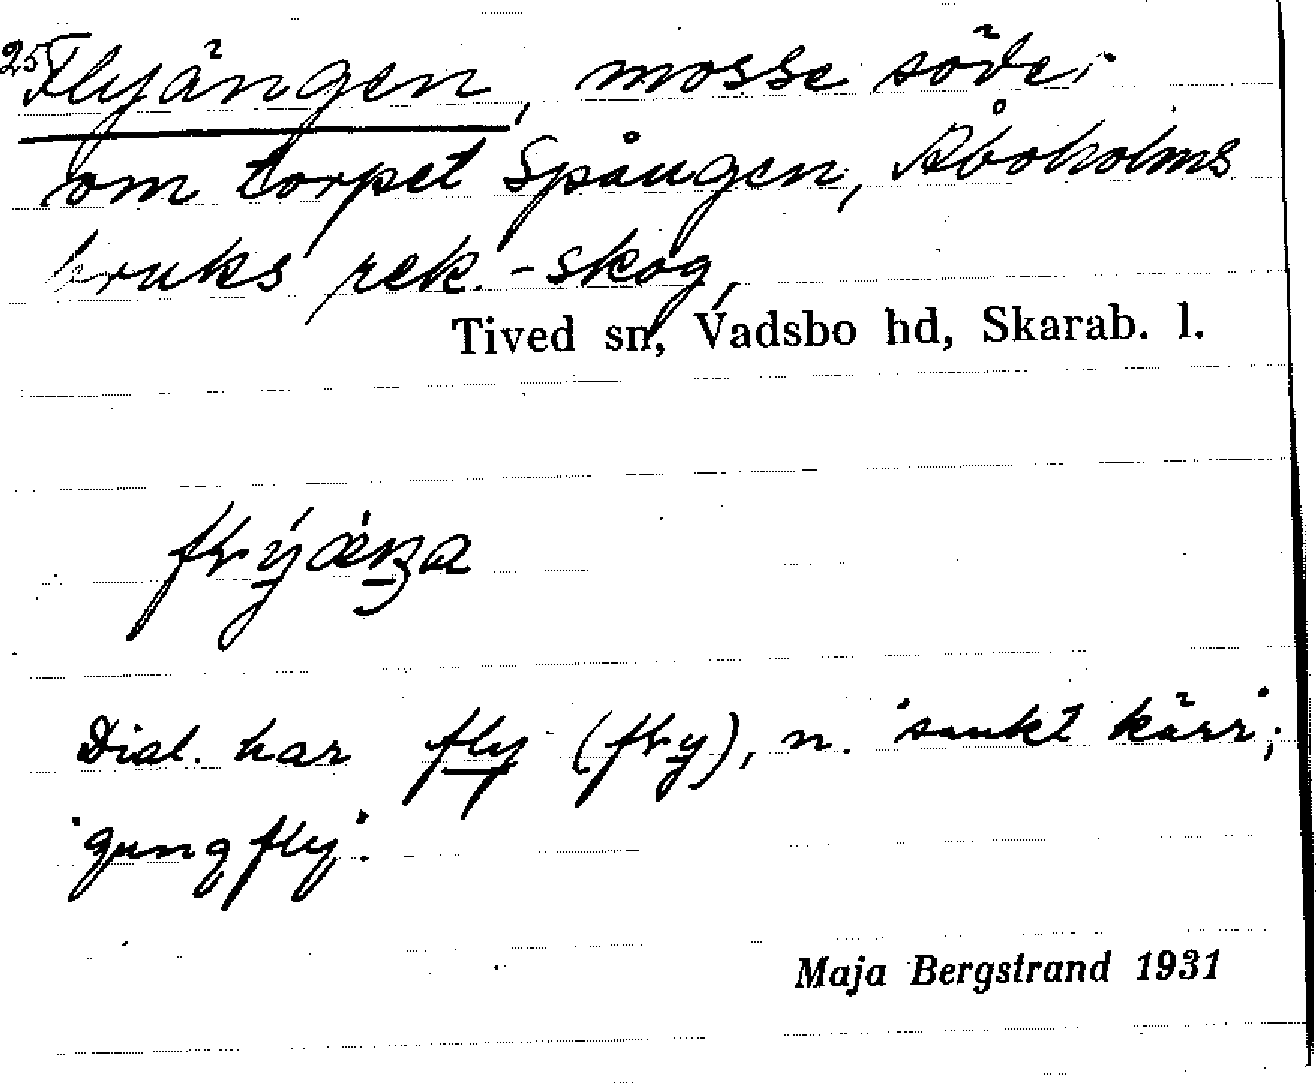 25 Flyängen, mosse söder
om torpet Spången, Åboholms
bruks rek.-skog,
Tived sn, Vadsbo hd, Skarab. l.
Dial. har fly (fry), n. 'sankt kärr';
'gungfly'.
Maja Bergstrand 1931